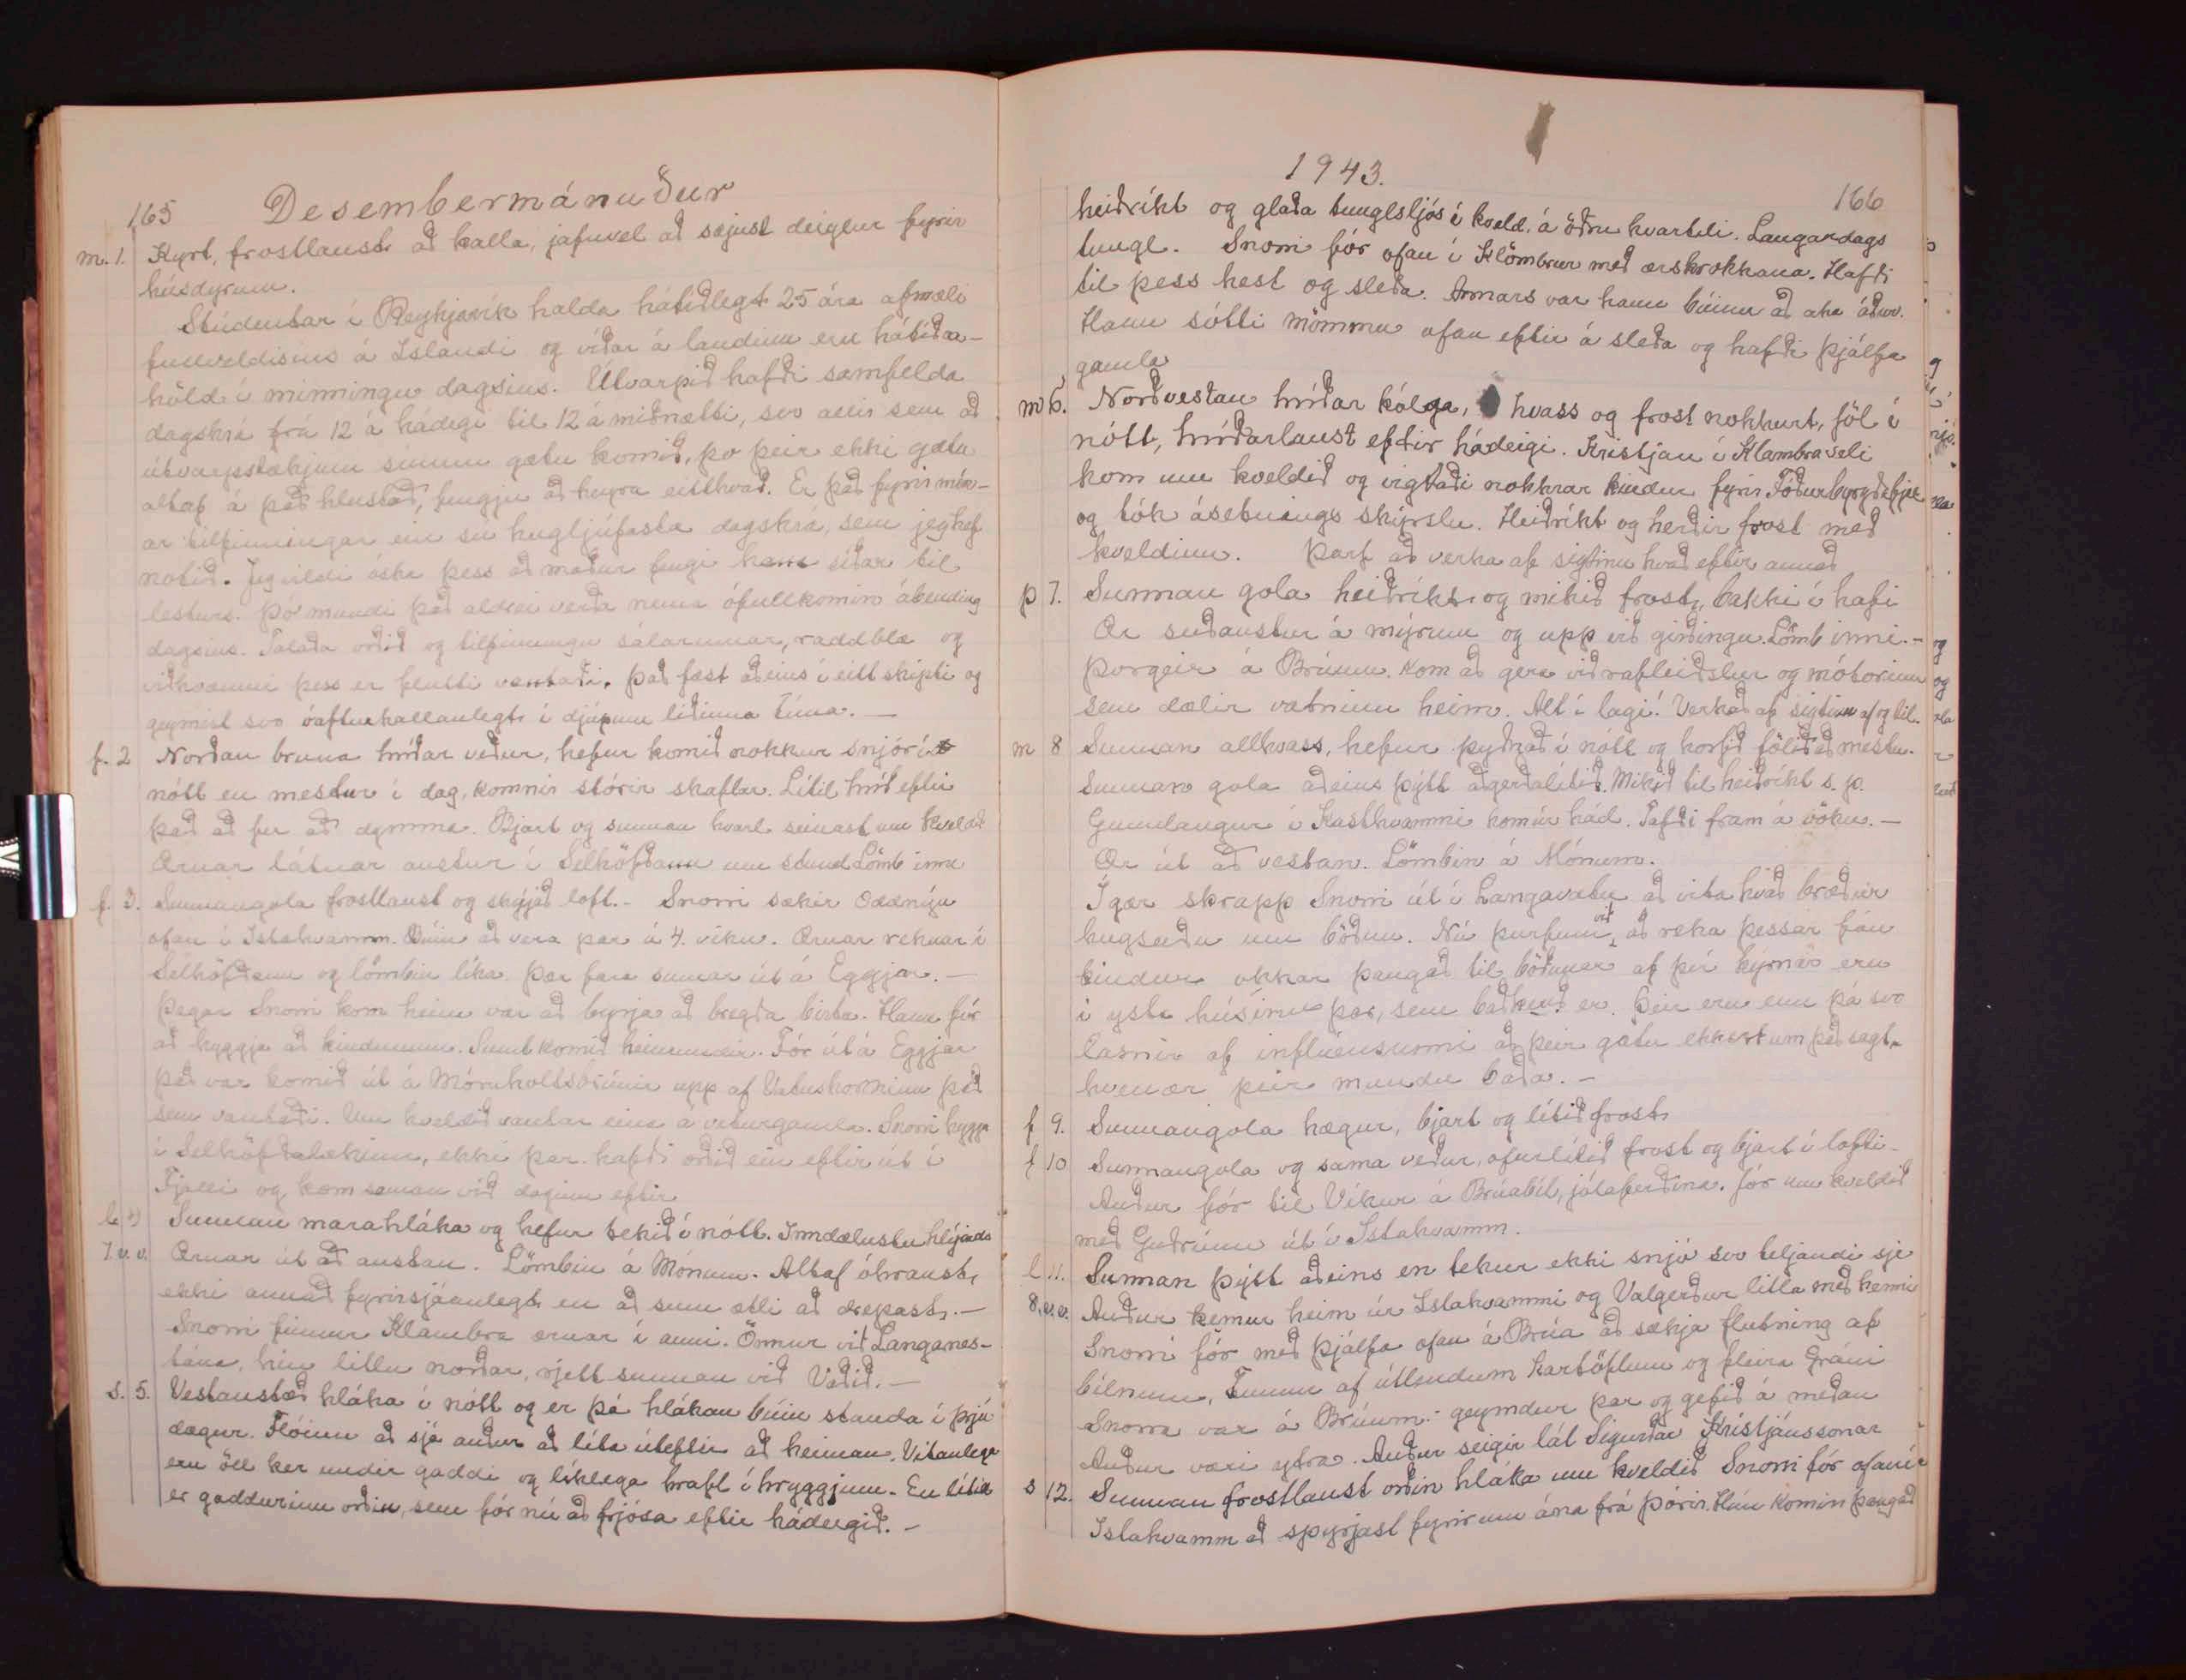 165 Desembermánuður
m. 1. Kyrt, frostlaust að kalla, jafnvel að sæjust deiglur fyrir
húsdyrum.
Stúdentar í Reykjavík halda hátíðlegt 25 ára afmæli
fullveldisins á Islandi og víðar á landinu eru hátíða-
höld í minningu dagsins. Utvarpið hafði samfelda
dagskrá frá 12 á hádegi til 12 á miðnætti, svo allir sem að
útvarpstækjum sínum gætu komið, þo þeir ekki gætu
altaf á það hlustað, fengju að heyra eitthvað. Er það fyrir mín-
ar tilfinningar ein sú hugljúfasta dagskrá, sem jeg hef
notið. Jeg vildi óska þess að maður fengi hana síðar til
lesturs. Þó mundi það aldrei verða nema ófullkomin ábending
dagsins. Talaða orðið og tilfinningu sálarinnar, raddblæ og
viðkvæmni þess er flutti vantaði. Það fæst aðeins í eitt skipti og
geymist svo óafturkallanlegt í djúpum liðinna tíma. —
f. 2 Norðan bruna hríðar veður, hefur komið nokkur snjór í
nótt en mestur í dag, komnir stórir skaflar. Lítil hríð eftir
það að fer að dymma. Bjart og sunnan kvarl seinast um kveldið
Ærnar látnar austur í Selhöfðann um stund Lömb inna
f. 3. Sunnangola frostlaust og skýjað loft. - Snorri sækir Oddnýu
ofan í Istahvamm. Búin að vera þar á 4. viku. Ærnar reknar í
Selhöfðann og lömbin líka. Þær fara sumar út á Eggjar. —
Þegar Snorri kom heim var að byrja að bregða birtu. Hann fór
að hyggja að kindunum. Sumt komið heimundir. Fór út á Eggjar
það var komið út á Móruholtsbrúnir upp af Vatnshorninu það
sem vantaði. Um kveldið vantar eina á veturgamla. Snorri hyggja
í Selhöfðalækinn, ekki þar. hafði orðið ein eftir út í
Fjalli og kom saman við daginn eftir
l. 4 Sunnan marahláka og hefur tekið í nótt. Inndælustu hlýinda
7. v. v. Ærnar út að austan. Lömbin á Mónum. Altaf óhraust,
ekki annað fyrirsjáanlegt en að sum ætli að drepast. —
Snorri finnur Klambra ærnar í anni. Önnur við Langanes-
tána, hin litlu norðar, rjett sunnan við Vaðið. —
S. 5. Vestanstæð hláka í nótt og er þá hlákan búin standa í þrjú
dægur. Flóinn að sjá auður að líta úteftir að heiman. Vitanlega
eru öll ker undir gaddi og líklega krafl í hryggjum. En lítill
er gaddurinn orðin, sem fór nú að frjósa eftir hádegið. -
1943. 166
heiðríkt og glaða tunglsljós í kveld, á öðru kvartili. Laugardags
tungl. Snorri fór ofan í Klömbrur með ærskrokkana. Hafði
til þess hest og sleða. Annars var hann búinn að aka áður.
Hann sótti mömmu ofan eftir á sleða og hafði Þjálfa
gamla
m 6. Norðvestan hríðar kólga, hvass og frost nokkurt, föl í
nótt, hríðarlaust eftir hádeigi. Kristjan í Klambraseli
kom um kveldið og vigtaði nokkrar kindur fyrir Fóðurbyrgðafjel
og tók ásetnings skýrslu. Heiðríkt og herðir frost með
kveldinu. Þarf að verka af sigtinu hvað eftir annað
þ 7. Sunnan gola heiðríkt og mikið frost, bakki í hafi
Ær suðaustur á mýrum og upp við girðingu. Lömb inni. -
Þorgeir á Brúum. Kom að gera við rafleiðslur og mótorinn
sem dælir vatninu heim. Alt í lagi! Verkað af sigtinu af og til.
m 8 Sunnan allhvass, hefur þyðnað í nótt og horfið fölið að mestu.
Sunnan gola aðeins þýtt aðgerðalítið. Mikið til heiðríkt s. p.
Gunnlaugur í Kasthvammi kom úr hád. Tafði fram á vöku. —
Ær út að vestan. Lömbin á Mónum.
Igær skrapp Snorri út í Langavatn að vita hvað bræður
hugsuðu um böðun. Nú þurfum við að reka þessar fáu
kindur okkar þangað til böðunar af því kýrnar eru
í ysta húsinu þar, sem baðkerið er. Þeir eru enn þá svo
lasnir af inflúensunni að þeir gátu ekkert um það sagt,
hvenær þeir mundu baða. -
f 9. Sunnangola hægur, bjart og lítið frost,
f 10 Sunnangola og sama veður, ofurlítið frost og bjart í lofti -
Auður fór til Víkur á Brúabíl, jólaferðina. fór um kveldið
með Guðrúnu út í Istahvamm.
l 11. Sunnan þýtt aðeins en tekur ekki snjó svo teljandi sje
8. v. v. Auður kemur heim úr Istahvammi og Valgerður litla með henni
Snorri fór með Þjálfa ofan á Brúa að sækja flutning af
bílnum, Tunnu af útlendum kartöflum og fleira Gráni
Snorra var á Brúum. - geymdur þar og gefið á meðan
Auður væri ytra. Auður seigir lát Sigurðar Kristjánssonar
s 12. Sunnan frostlaust orðin hláka um kveldið Snorri fór ofan í
Istahvamm að spyrjast fyrir um ána frá Þórir. Hún komin þangað